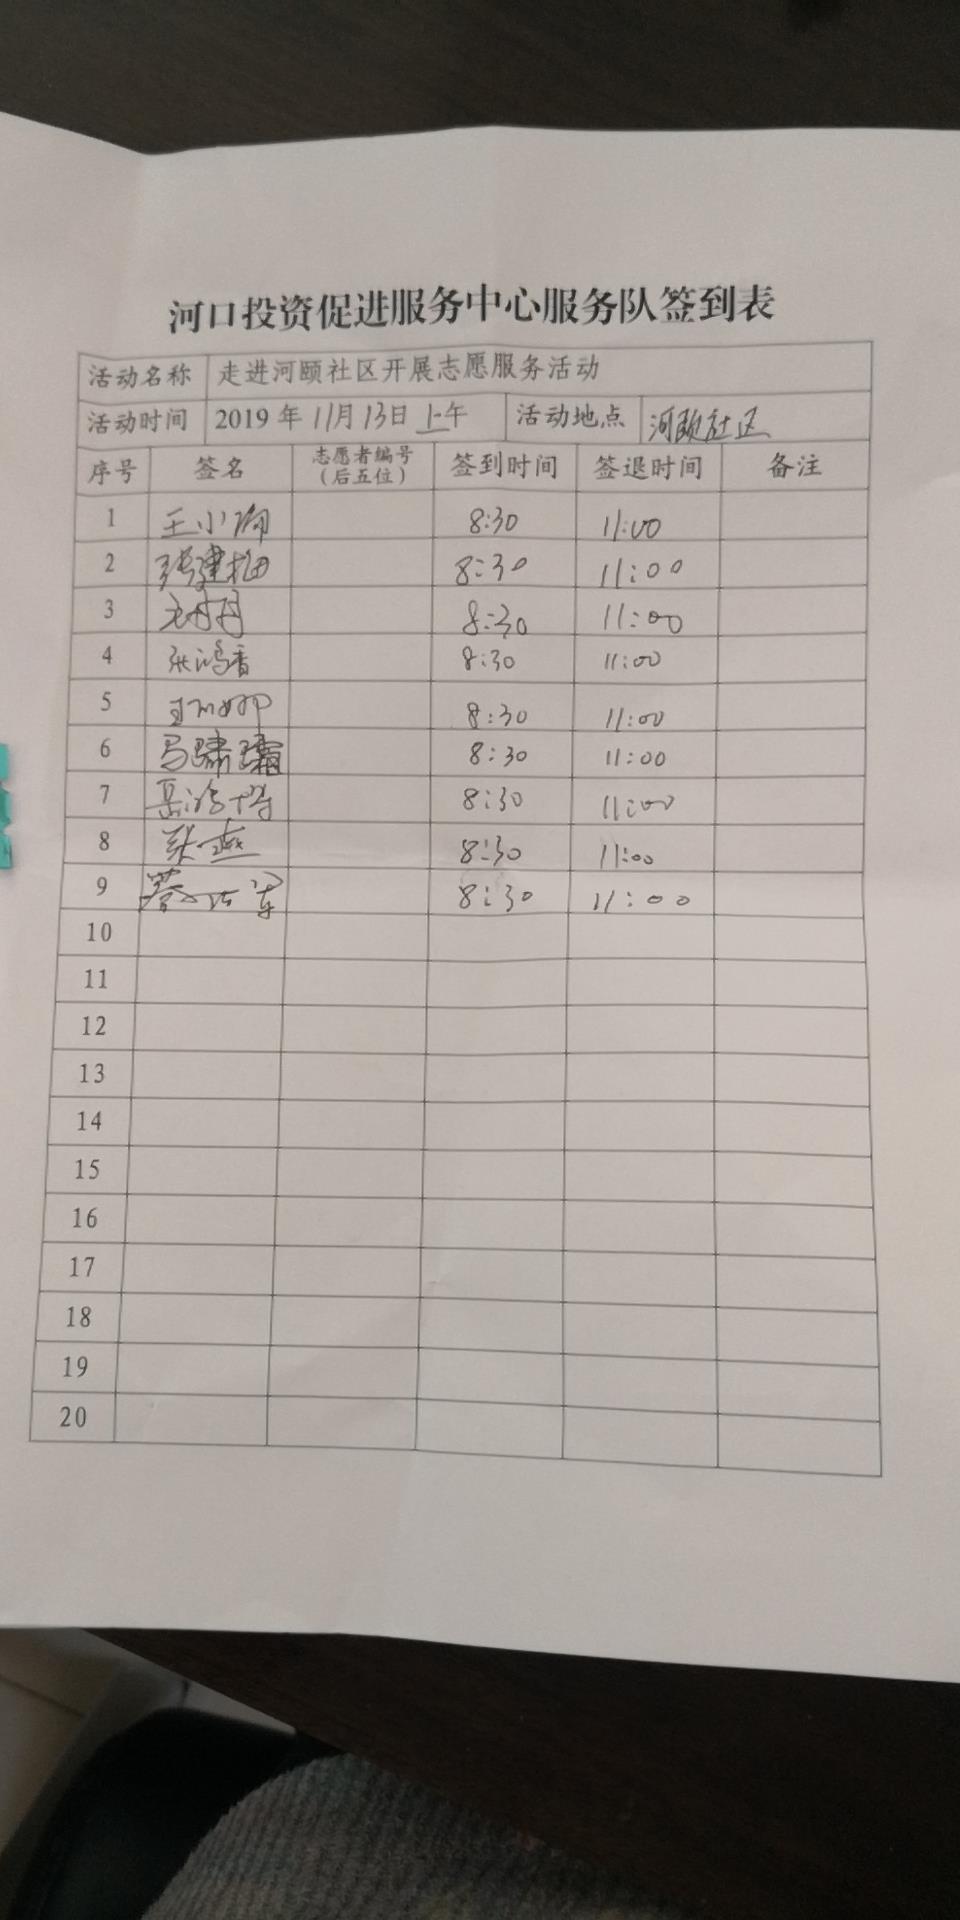 河口投资促进服务中心服务队签到表
活动名称 走进河颐社区开展志愿服务活动
活动时间 2019 年 11月 13日 上午 活动地点 河颐社区
序号 签名 志愿者编号（后五位） 签到时间 签退时间 备注
1 王小 8:30 11:00
2 张建梅 8:30 11:00
3 8:30 11:00
4 张鸿香 8:30 11:00
5 8:30 11:00
6 马啸 8:30 11:00
7 8:30 11:00
8 张燕 8:30 11:00
9 蔡 军 8:30 11:00
10
11
12
13
14
15
16
17
18
19
20